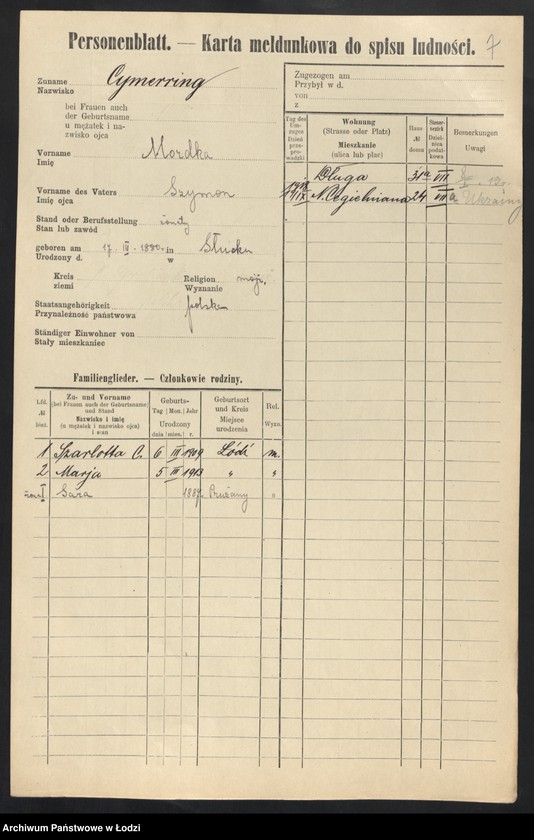 Personenblatt. — Karta meldunkowa do spisu ludności. 7
Zuname
Nazwisko
Cymerring
bei Frauen auch
der Geburtsname
u mężatek i na-
zwisko ojca
Vorname
Imię
Mordka
Vorname des Vaters
Imię ojca
Szymon
Stand oder Berufsstellung
Stan lub zawód
żonaty
geboren am 17. III. 1880. in Słucku
Urodzony d. w
Kreis
ziemi
Religion
Wyznanie
mojż.
Staatsangehörigkeit
Przynależność państwowa
polska
Ständiger Einwohner von
Stały mieszkaniec
Zugezogen am
Przybył w d.
von
z
Tag des
Um-
zuges
Dzień
prze-
prowadzki
Wohnung
(Strasse oder Platz)
Mieszkanie
(ulica lub plac)
Haus
№
domu
Steuer-
bezirk
Dziel-
nica
podat-
kowa
Bemerkungen
Uwagi
Długa 31a VIII
N. Cegielniana 24 VII a
z Ukrainy
Familienglieder. — Członkowie rodziny.
Lfd.
№
bież.
Zu- und Vorname
(bei Frauen auch der Geburtsname)
und Stand
Nazwisko i imię
(u mężatek i nazwisko ojca)
i stan
Geburts-
Tag Mon. Jahr
Urodzony
dnia mies. r.
Geburtsort
und Kreis
Miejsce
urodzenia
Rel.
Wyzn.
1 Szarlotta C. 6 III 1909 Łódź m.
2 Marja 5 III 1913 " "
żona I Sara 1887 Prużany "
Archiwum Państwowe w Łodzi